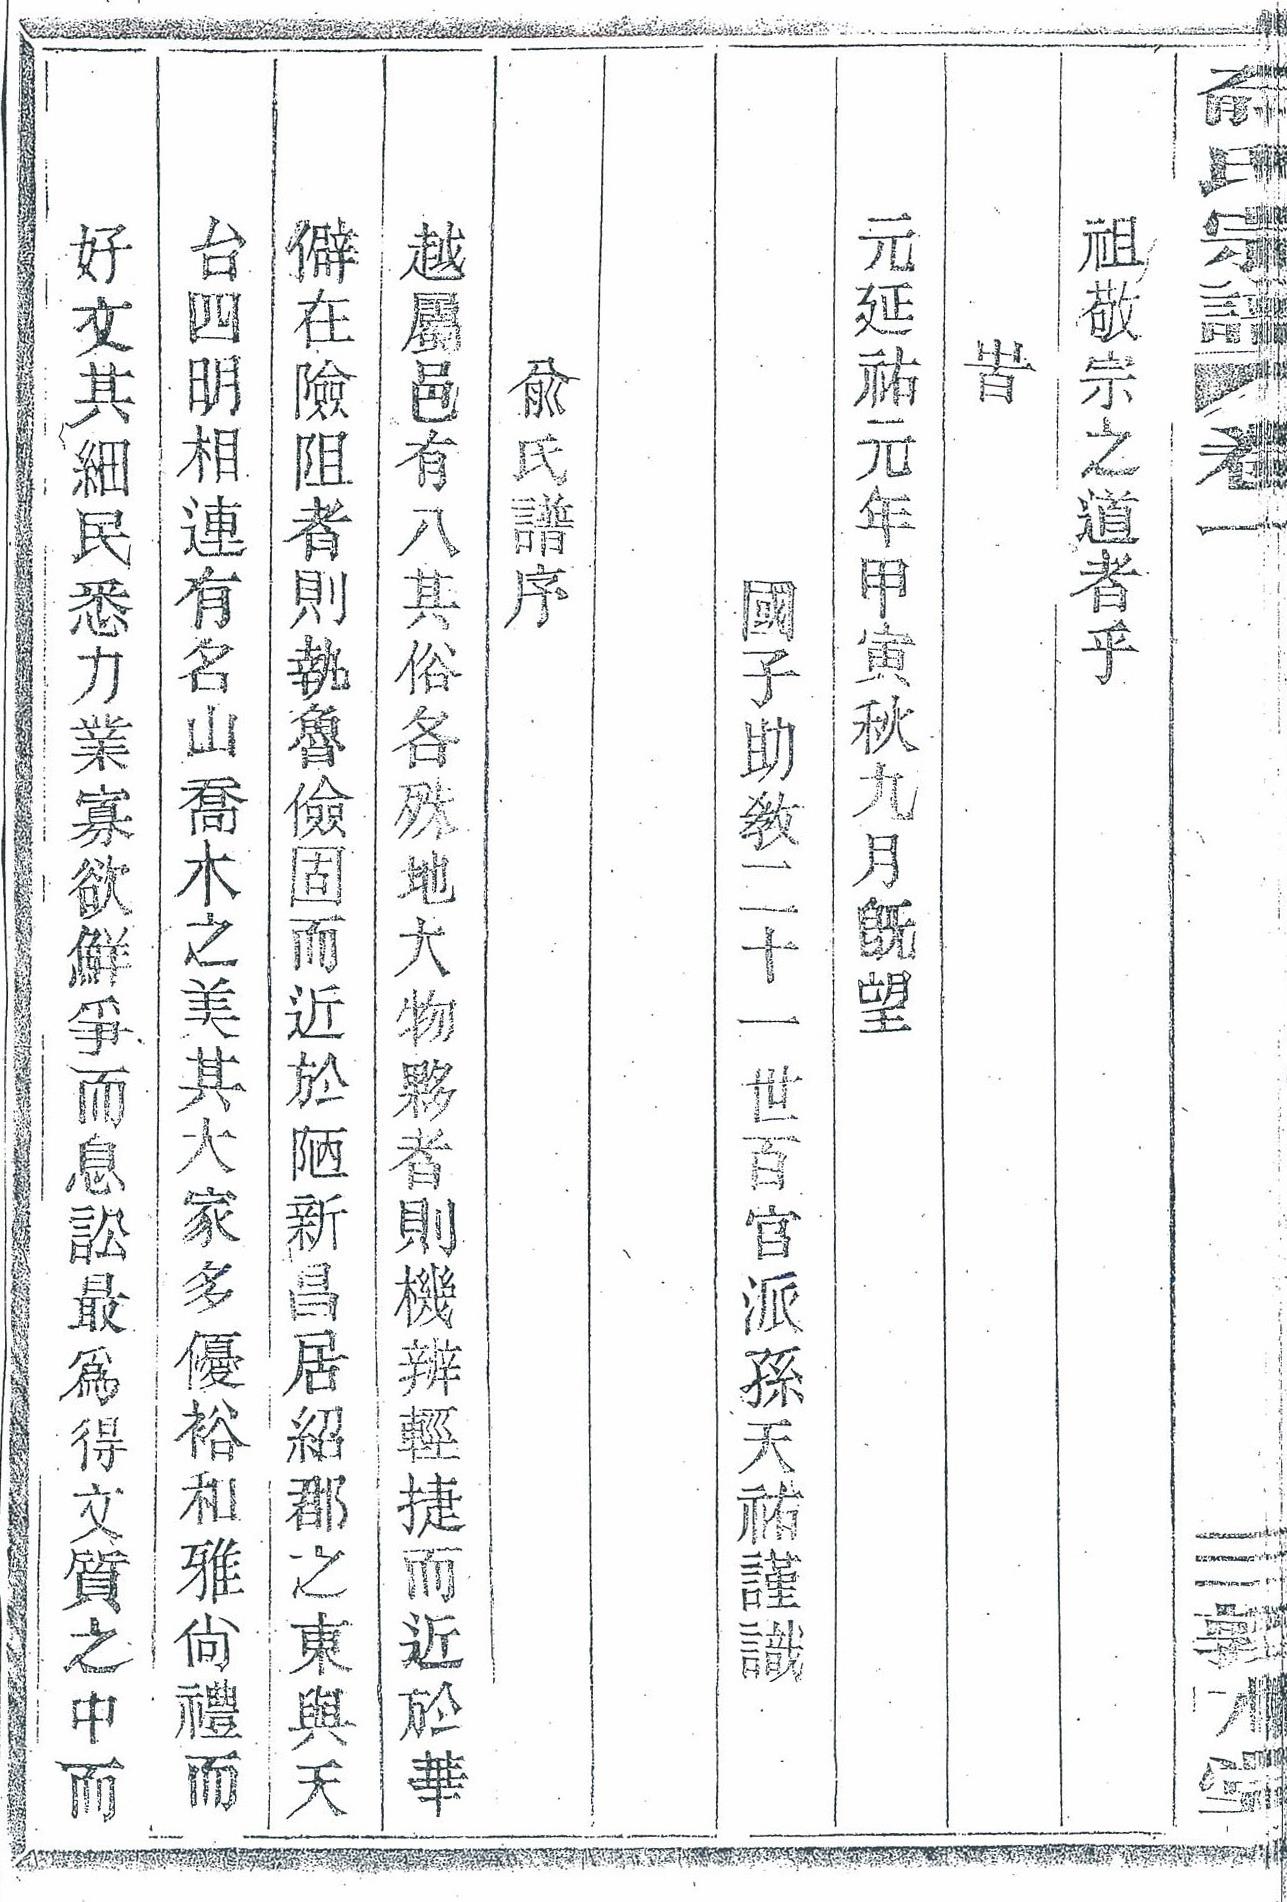 俞氏宗譜 卷一
祖敬宗之道者乎
旹
元延祐元年甲寅秋九月旣望
國子助教二十一世百官派孫天祐謹識
俞氏譜序
越屬邑有八其俗各殊地大物夥者則機辨輕捷而近於華
僻在險阻者則執魯儉固而近於陋新昌居紹郡之東與天
台四明相連有名山喬木之美其大家多優裕和雅尙禮而
好文其細民悉力業寡欲鮮爭而息訟最爲得文質之中而